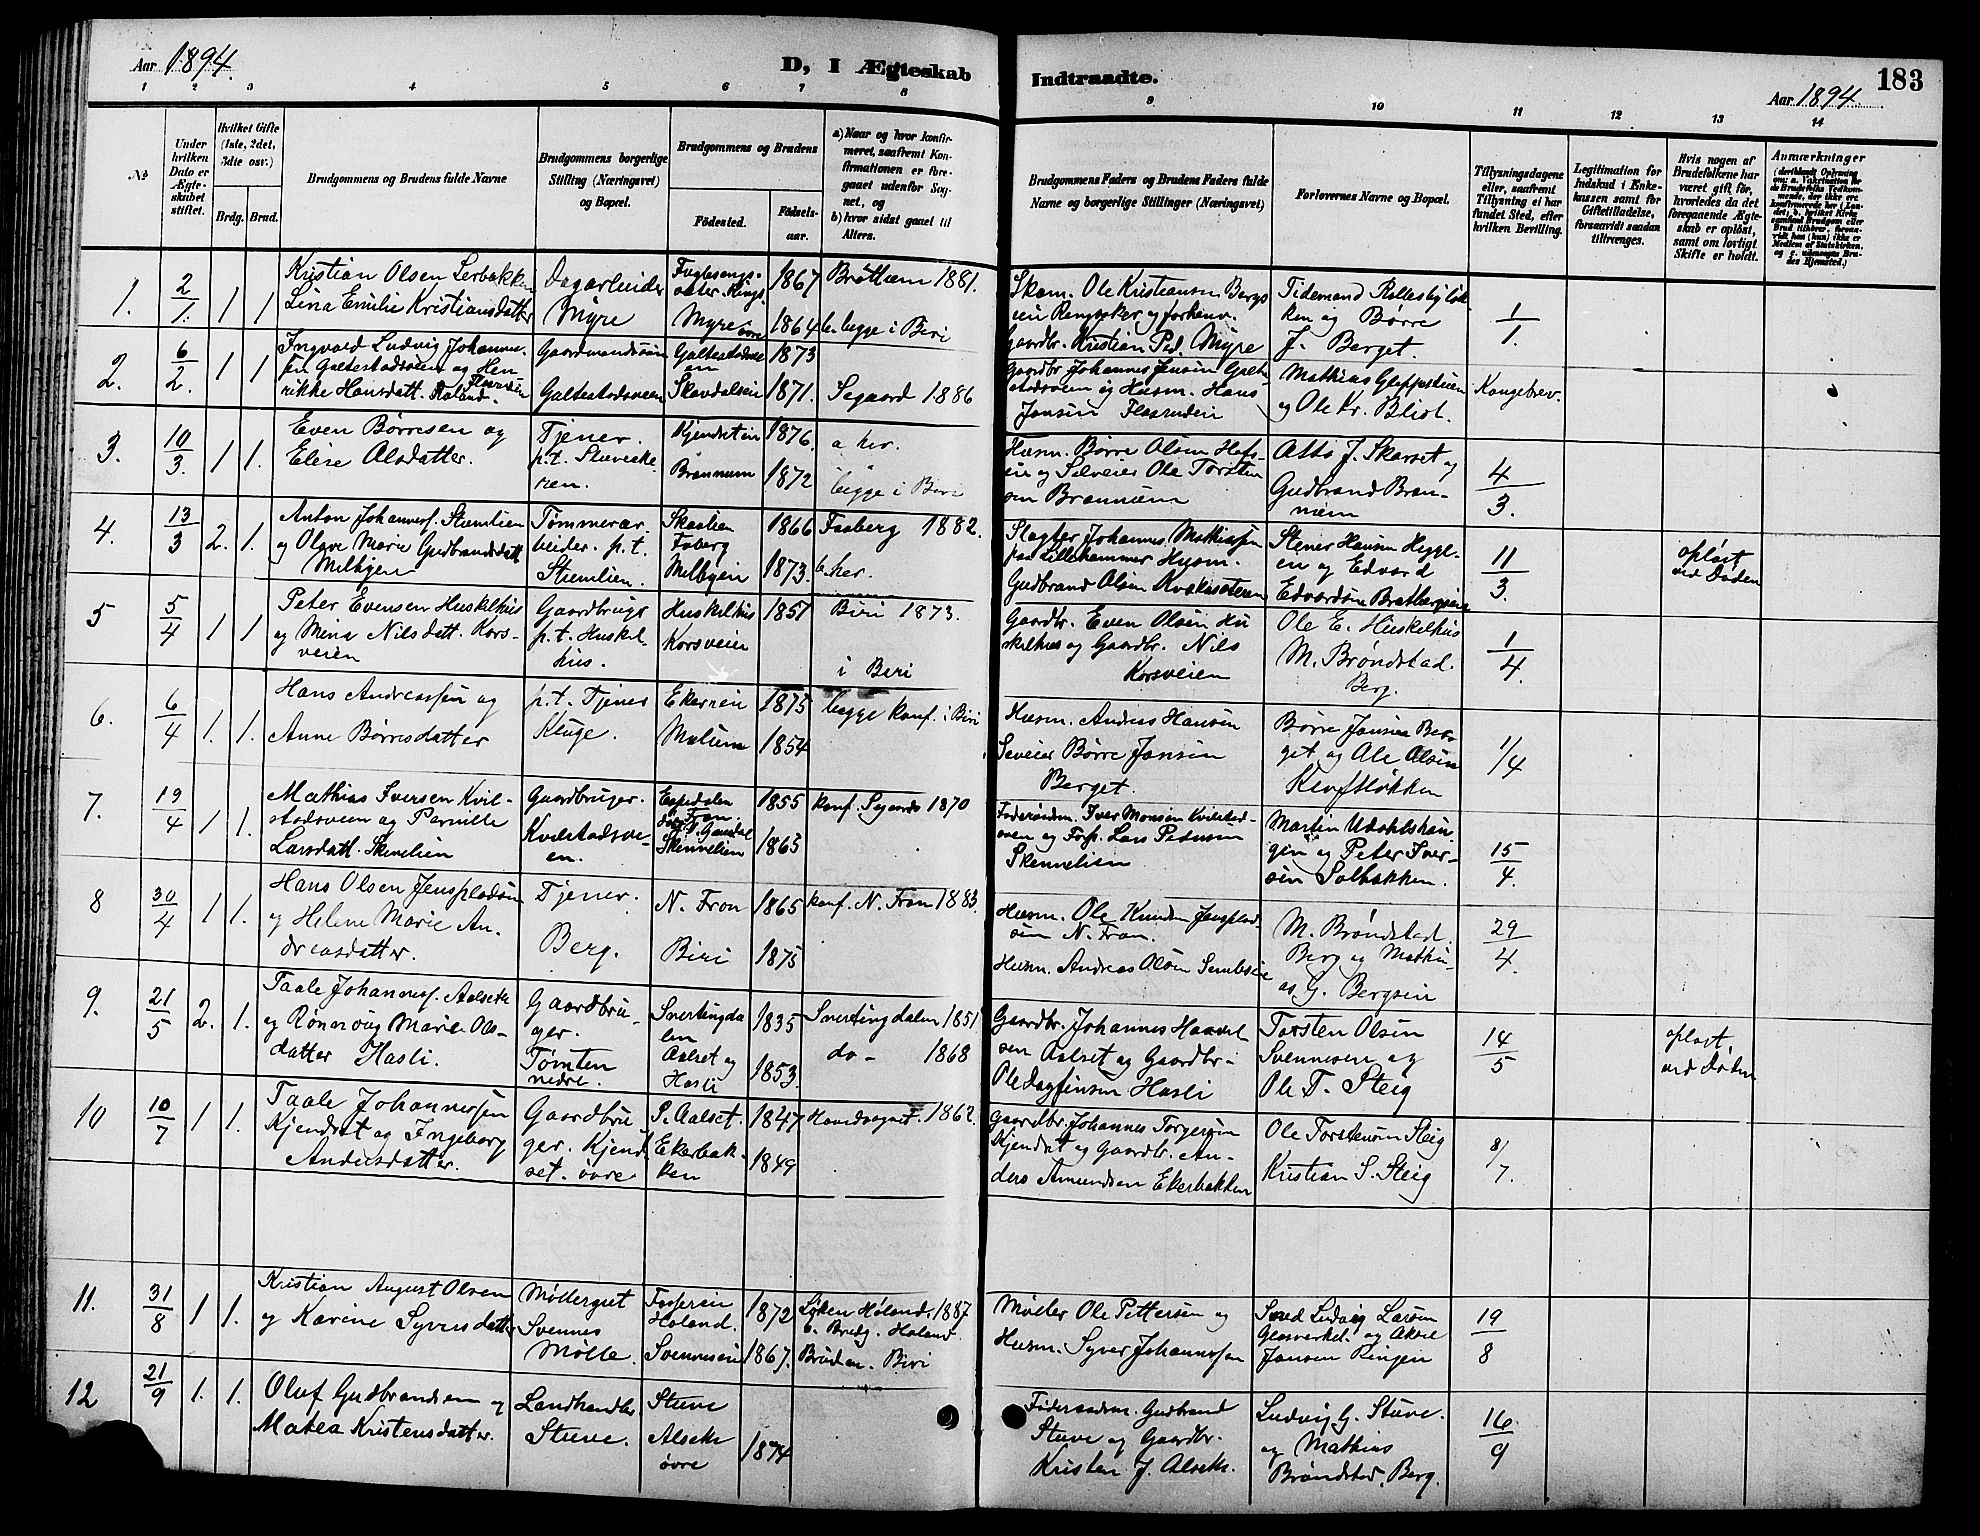 Aar 1894.
D, I Ægteskab
Indtraadte.
183
Aar 1894
1 2 3 4 5 6 7 8
9 10 11 12 13 14
№
Under hvilken Dato er Ægteskabet stiftet.
Hvilket Gifte (1ste, 2det, 3die osv.)
Brdg. Brud.
Brudgommens og Brudens fulde Navne
Brudgommens borgerlige Stilling (Næringsvei) og Bopæl.
Brudgommens og Brudens
Fødested.
Fødselsaar.
a) Naar og hvor konfirmeret, saafremt Konfirmationen er foregaaet udenfor Sognet, og
b) hvor sidst gaaet til Alters.
Brudgommens Faders og Brudens Faders fulde Navne og borgerlige Stillinger (Næringsvei)
Forlovernes Navne og Bopæl.
Tillysningsdagene eller, saafremt Tillysning ei har fundet Sted, efter hvilken Bevilling.
Legitimation for Indskud i Enkekassen samt for Giftetilladelse, forsaavidt saadan tiltrænges.
Hvis nogen af Brudefolkene har været gift før, hvorledes da det foregaaende Ægteskab er opløst, samt om lovligt Skifte er holdt.
Anmærkninger
1. 2/1. 1 1
Kristian Olsen Lerbakken
Lina Emilie Kristiansdatter
Dagarbeider
Myre
Myre øvre
1867
1864
Brøttum 1881.
b. begge i Biri
Skom. Ole Kristiansen Bergs
eie Ringsaker og forhenv.
Gaardbr. Kristian Ped. Myre
Tidemand Rollesbyløk
ken og Børre
J. Berget.
1/1.
2. 6/2. 1 1
Ingvald Ludvig Johannes
sen Galtestadsveen og Hen
rikke Hansdatt.
Gaardmandssøn
Galtestadsveen
Galtestadsve
en
Skavdalseie
1873
1871.
Segaard 1886
Gaardbr Johannes Jensen Galte
stadsveen og Husm. Hans
Jansen Flasrudeie
Mathias Gleppesteien
og Ole Kr. Bliol.
Kongebrev.
3. 10/3. 1 1.
Even Børresen og
Elise Olsdatter.
Tjener.
p.t. Stuveske
ren.
Brænnum
1876.
1872
a her.
begge i Biri
Husm. Børre Olsen Hofs
eie og Selveier Ole Torsten
sen Brænnum
Otto J. Skarset og
Gudbrand Bræn
num
4/3.
4. 13/3 2. 1.
Anton Johannesf. Stumlien
og Olave Marie Gudbrandsdatt
Melbyeie
Tømmerar
beider. p.t.
Stumlien.
Skaalien
Faberg
Melbyeie
1866
1873.
Faaberg 1882.
b. her.
Slagter Johannes Mathiasen
fra Lillehammer Husm.
Gudbrand Olsen
Stener Hansen Heggel
en og Edvard
Edvardsen Bratbergseie
11/3.
opløst
ved Døden
5 5/4 1 1
Peter Evensen Huskelhus
og Mina Nilsdatt. Kors
veien
Gaardbrugs
p.t. Huskel
hus.
Huskelhus
Korsveien
1857
Biri 1873.
i Biri
Gaardbr. Even Olsen Hu
skelhus og Gaardbr. Nils
Korsveien
Ole E. Huskelhus
M. Brøndstad.
Berg.
1/4.
6. 6/4 1. 1.
Hans Andreassen og
Anne Børresdatter
p.t. Tjener
Kluge.
Ekerneie
1875
1854
begge konf. i Biri
Husm. Andreas Hansen
Seveier Børre Jansen
Berget.
Børre Jansen Ber
get og Ole Olsen
1/4
7. 19/4 1 1.
Mathias Iversen Kvil
stadsveen og Pernille
Larsdatt. Skinelien
Gaardbruger.
Kvilstadsve
en.
Espedalen
Fron.
1855
1863
konf. Segards 1870
Føderaadm. Iver Monsen Kvilstad
sveen og Forp. Lars Pedersen
Skennelien
Martin Udahlshau
gen og Peter Iver
sen Solbakken.
15/4.
8 30/4 1 1.
Hans Olsen Jenspladsen
og Helene Marie An
dreasdatter.
Tjener.
Berg.
N. Fron
Biri
1865
1875
konf. N. Fron 1883.
Husm. Ole Knudsen Jensplad
sen N. Fron.
Husm. Andreas Olsen
M. Brøndstad.
Berg og Mathi
as G. Bergseie
29/4.
9. 21/5 2. 1.
Taale Johannesf. Aalset
og Rønnaug Marie Ols
datter Hasli.
Gaardbru
ger.
Tømten
nedre.
Snertingda
len
Aalset og
Hasli
1835
1853.
Snertingdalen 1851
do- 1868
Gaardbr. Johannes Haavel
sen Aalset og Gaardbr.
Ole Dagfinsen Hasli
Torsten Olsen
Svennesen og
Ole T. Steig
14/5
opløst
ved Døden
10 10/7 1 1.
Taale Johannessen
Kjendset og Ingeborg
Andersdatter.
Gaardbru
ger. Kjend
set. øvre
S. Aalset.
Ekerbak
ken
1847
1849
1862.
Gaardbr. Johannes Torgersen
Kjendset og Gaardbr. An
ders Amundsen Ekerbakken
Ole Torstensen Steig
Kristian S. Steig
8/7.
11. 31/8 1 1.
Kristian August Olsen
og Karine Syversdatter
Møllergut
Svennes
Mølle.
Høland.
Svenneseie
1872
1867.
Løken Høland. 1887
b. Brudg. Høland.
Bruden. Biri
Møller Ole Pettersen og
Husm. Syver Johannessen
Smed Ludvig Larsen
Glasverket. og Aksel
Jansen Ringen
19/8
12 21/9 1. 1.
Oluf Gudbrandsen og
Matea Kristensdatter.
Landhandler
Stuve.
Stuve
Alsete
øvre
1874
Føderaadm. Gudbrand
Stuve og Gaardbr.
Kristen J. Alsete.
Ludvig G. Stuve.
og Mathias
Brøndstad, Berg.
16/9